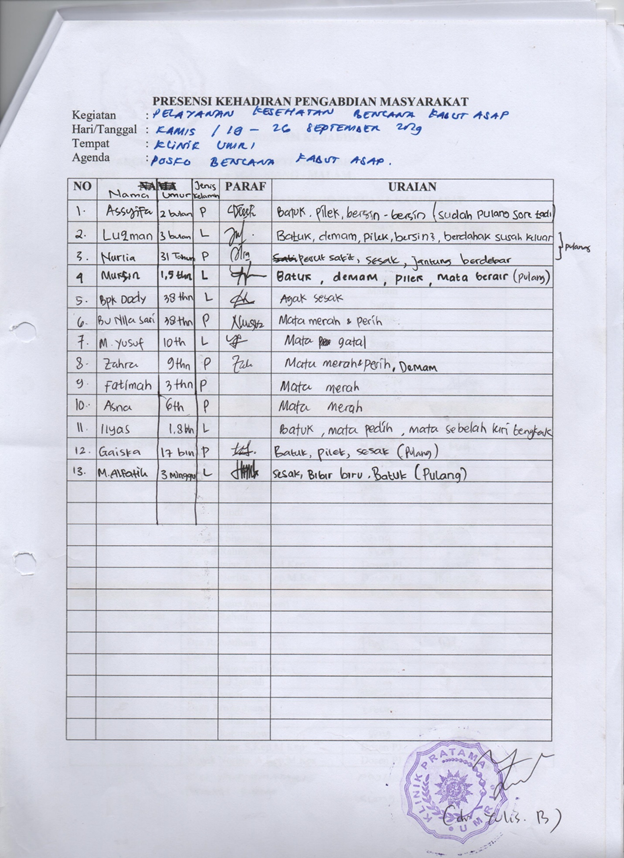 PRESENSI KEHADIRAN PENGABDIAN MASYARAKAT
Kegiatan : PELAYANAN KESEHATAN BENCANA KABUT ASAP
Hari/Tanggal : KAMIS / 18 - 26 SEPTEMBER 2019
Tempat : KLINIK UMRI
Agenda : POSKO BENCANA KABUT ASAP.
NO NAMA Nama Umur Jenis Kelamin PARAF URAIAN
1. Assyifa 2 bulan P Batuk, pilek, bersin-bersin (sudah pulang sore tadi)
2. Luqman 3 bulan L Batuk, demam, pilek, bersin2, berdahak susah keluar
3. Nurlia 31 Tahun P perut sakit, sesak, jantung berdebar
pulang
4 Mursin 1,5 thn L Batuk, demam, pilek, mata berair (pulang)
5. Bpk Dody 38 thn L Agak sesak
6. Bu Nila Sari 38 thn P Mata merah & perih
7. M. Yusuf 10 th L Mata gatal
8. Zahra 9 thn P Mata merah & perih, Demam
9. Fatimah 3 thn P Mata merah
10. Asna 6 th P Mata merah
11. Ilyas L Batuk, mata pedih, mata sebelah kiri bengkak
12. Gaiska 17 bln P Batuk, pilek, sesak (Pulang)
13. M. Alfatih 3 minggu L Sesak, Bibir biru, Batuk (Pulang)
KLINIK PRATAMA
UMRI
(dr. Yulis. B)